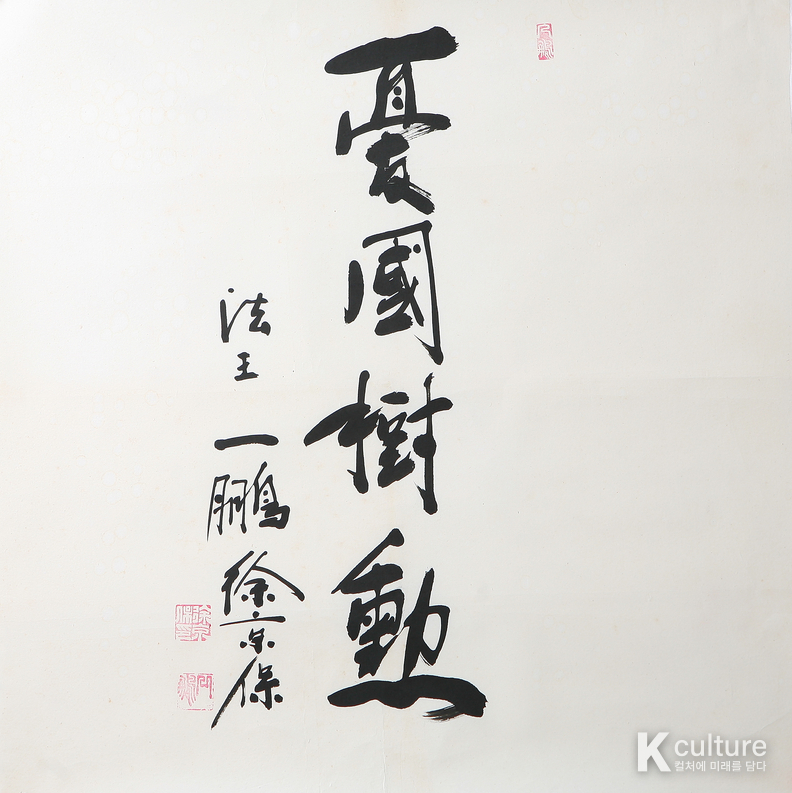 憂國樹勳
法王 一鵬 徐京保
K culture
컬처에 미래를 담다